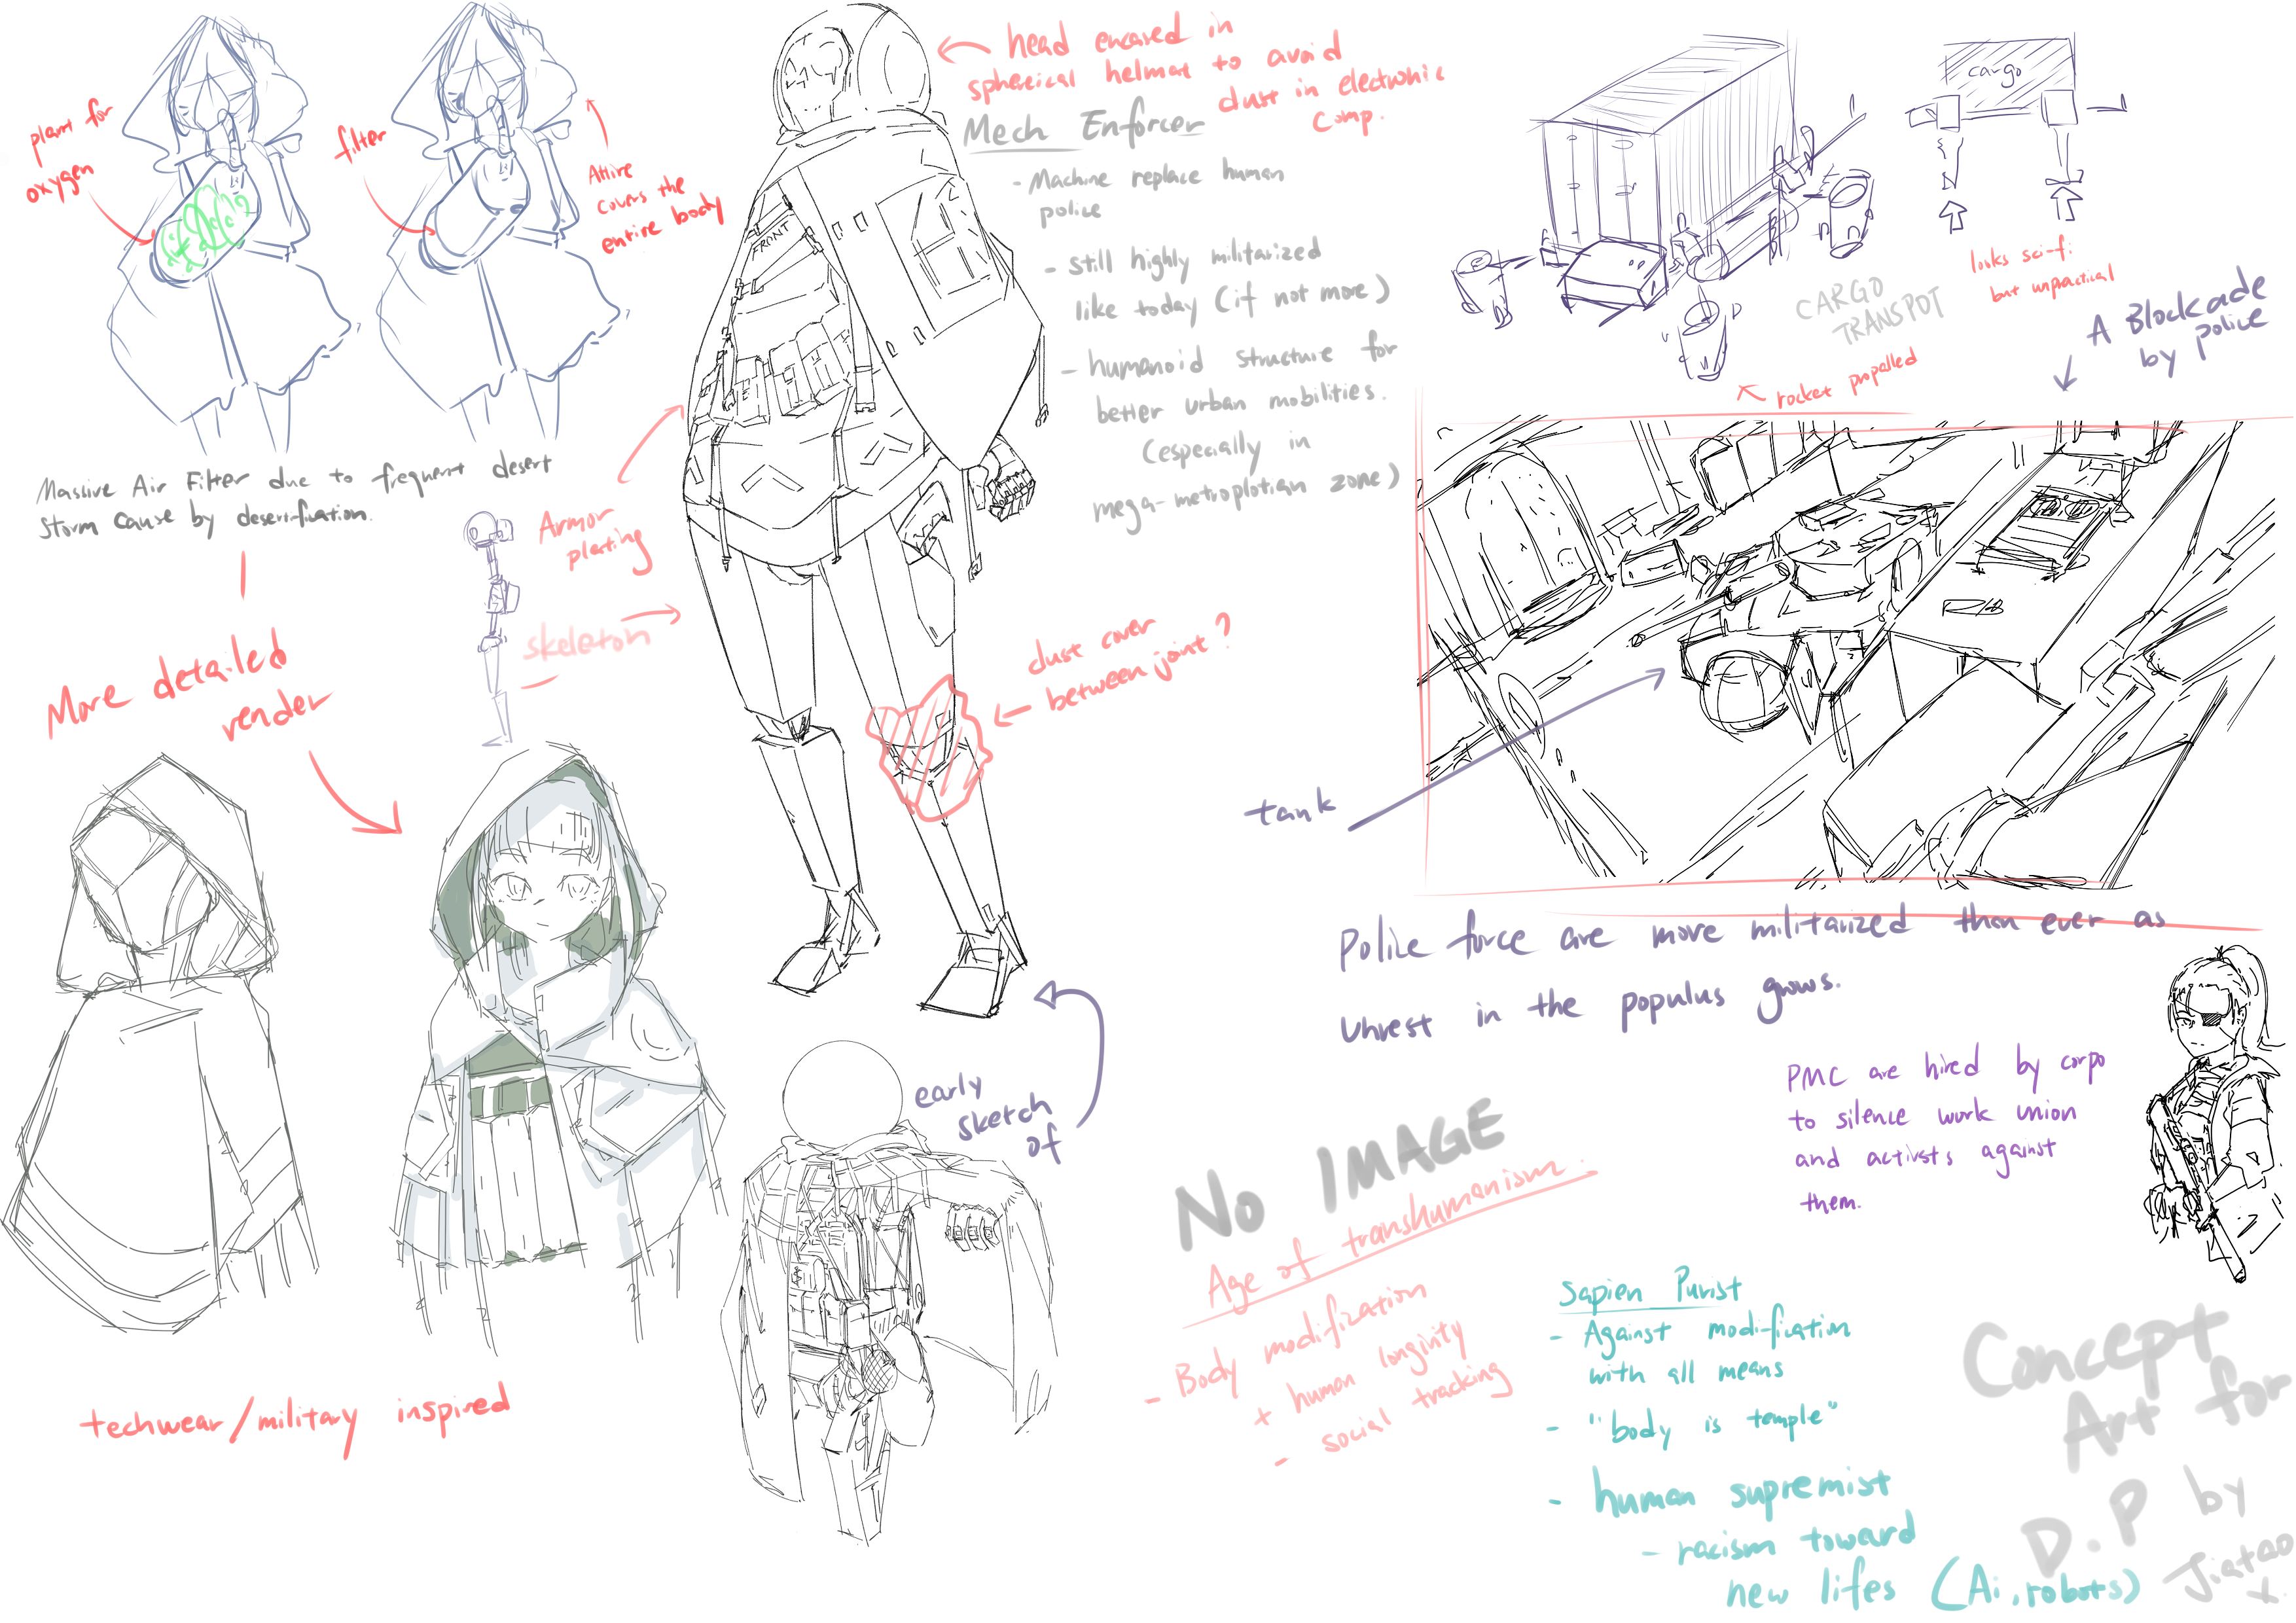 plant for
oxygen
filter
Attire
covers the
entire body
Massive Air Filter due to frequent desert
storm cause by desertification.
More detailed
render
techwear/military inspired
head encased in
spherical helmat to avoid
dust in electronic
comp.
Mech Enforcer
- Machine replace human
police
- still highly militarized
like today (if not more)
- humanoid structure for
better urban mobilities.
(especially in
mega-metroplotian zone)
FRONT
Armor
plating
skeleton
dust cover
between joint?
early
sketch
of
cargo
looks sci-fi
but unpractical
CARGO
TRANSPOT
rocket propalled
A Blockade
by police
tank
Police force are more militarized than ever as
unrest in the populus grows.
PMC are hired by corpo
to silence work union
and activsts against
them.
No IMAGE
Age of transhumanism.
- Body modifization
+ human longinity
- social tracking
Sapien Purist
- Against modification
with all means
- "body is temple"
- human supremist
- racism toward
new lifes (Ai, robots)
Concept
Art for
D.P by
Jiatao
x.